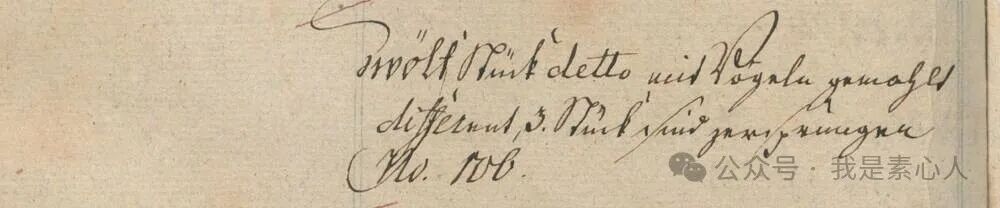 Zwölf Stück detto mit Vögeln gemahlt
different, 3. Stück sind zersprungen
No. 106.
公众号 · 我是素心人